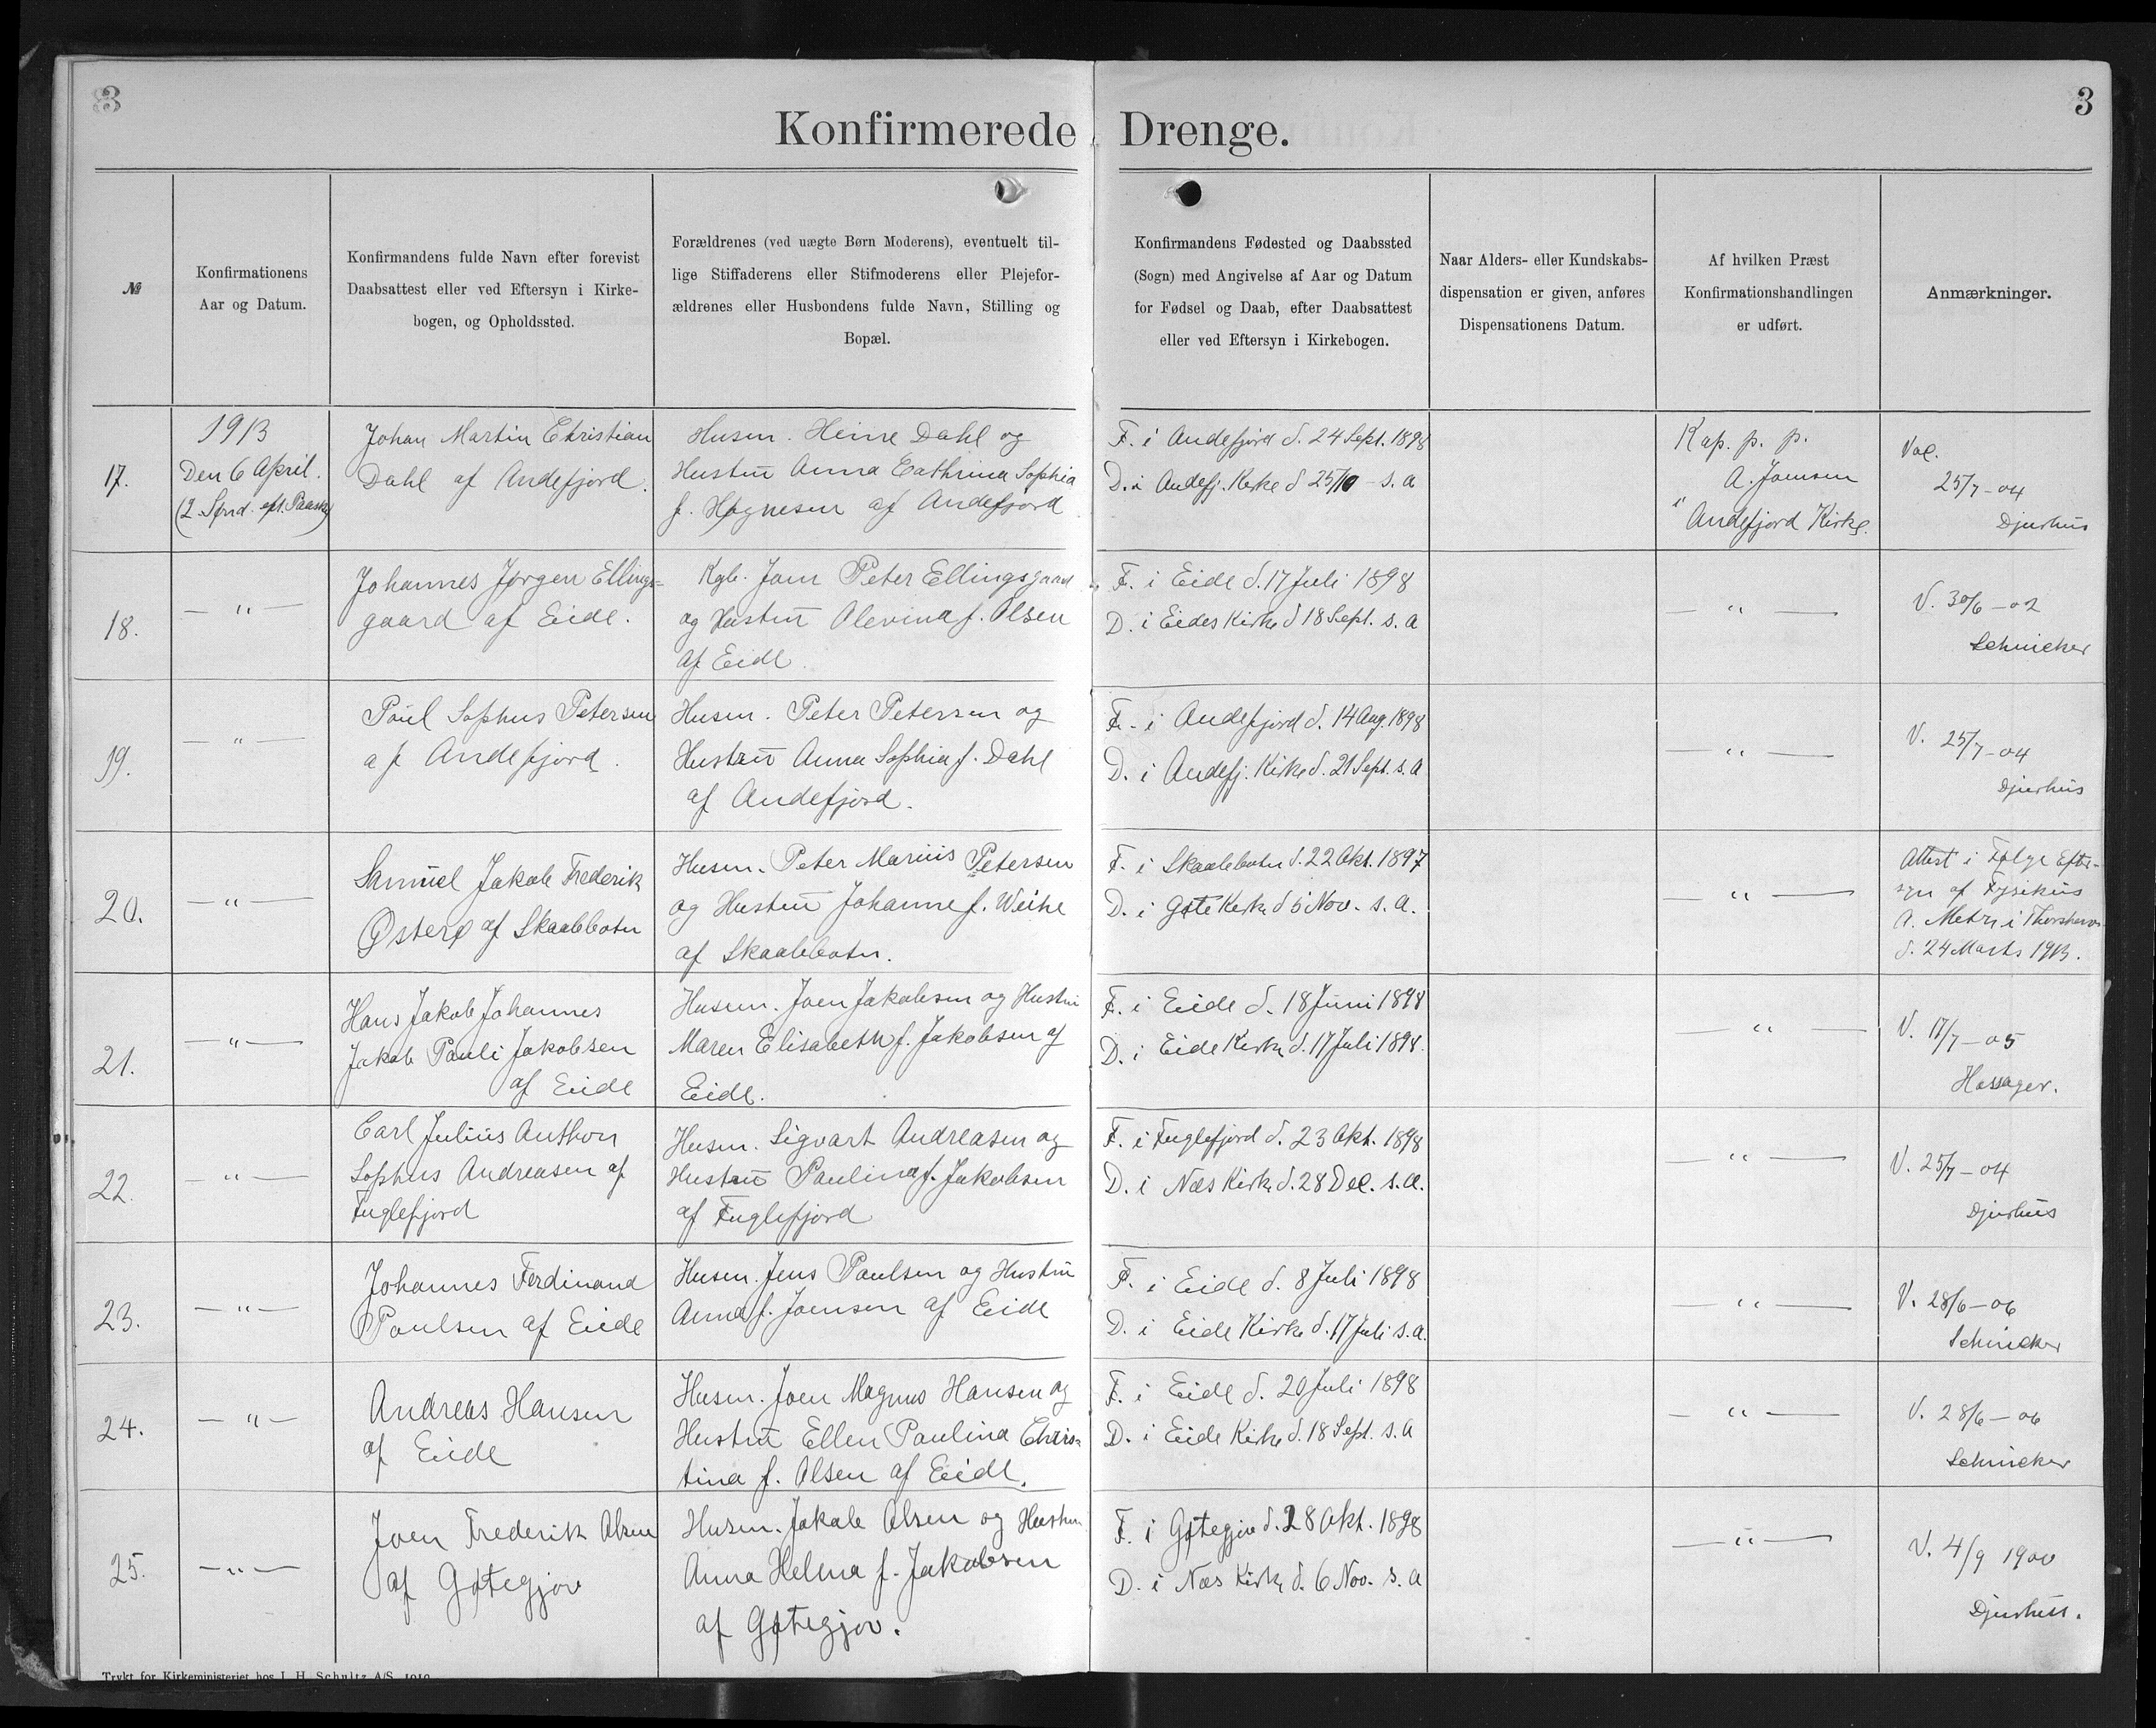 3
3
Konfirmerede Drenge.
№
Konfirmationens
Aar og Datum.
Konfirmandens fulde Navn efter forevist
Daabsattest eller ved Eftersyn i Kirke-
bogen, og Opholdssted.
Forældrenes (ved uægte Børn Moderens), eventuelt til-
lige Stiffaderens eller Stifmoderens eller Plejefor-
ældrenes eller Husbondens fulde Navn, Stilling og
Bopæl.
Konfirmandens Fødested og Daabssted
(Sogn) med Angivelse af Aar og Datum
for Fødsel og Daab, efter Daabsattest
eller ved Eftersyn i Kirkebogen.
Naar Alders- eller Kundskabs-
dispensation er given, anføres
Dispensationens Datum.
Af hvilken Præst
Konfirmationshandlingen
er udført.
Anmærkninger.
17.
1913
Den 6 April.
(2. Sønd. eft. Paaske)
Johan Martin Christian
Dahl af Andefjord.
Husm. Heine Dahl og
Hustrū Anna Cathrina Sophia
f. Høgnesen af Andefjord
F. i Andefjord d. 24 Sept. 1898
D. i Andefj. Kirke d 25/10 - s. a
Kap. p. p.
A. Joensen
i Andefjord Kirke.
Vac.
25/7-04
Djurhūs
18.
— " —
Johannes Jørgen Ellings=
gaard af Eide.
Kgb. Joen Peter Ellingsgaard
og Hustrū Olevina f. Olsen
af Eide.
F. i Eide d. 17 Juli 1898
D. i Eides Kirke d 18 Sept. s. a
— " —
V. 30/6-02
Schnieker
19.
— " —
Poūl Sophus Petersen
af Andefjord.
Husm. Peter Petersen og
Hustrū Anna Sophia f. Dahl
af Andefjord.
F. i Andefjord d. 14 Aug. 1898
D. i Andefj. Kirke d. 21 Sept. s. a
— " —
V. 25/7-04
Djurhūs
20.
— " —
Samūel Jakob Frederik
Østerø af Skaalebotn
Husm. Peter Mariūs Petersen
og Hustrū Johanne f. Weihe
af Skaalebotn.
F. i Skaalebotn d. 22 Okt. 1897
D. i Gøte Kirke d 5 Nov. s. a.
— " —
Attest i Følge Efter-
syn af Fysikūs
A. i Thorshavn
d. 24 Marts 1913.
21.
— " —
Hans Jakob Johannes
Jakob Pauli Jakobsen
af Eide
Husm. Joen Jakobsen og Hustrū
Maren Elisabeth f. Jakobsen af
Eide.
F. i Eide d. 18 Jūni 1898
D. i Eide Kirke d. 17 Juli 1898.
— " —
V. 17/7-05
Hassager.
22.
— " —
Carl Juliūs Anthon
Sophus Andreasen af
Fuglefjord
Husm. Sigvart Andreasen og
Hustrū Paulina f. Jakobsen
af Fuglefjord
F. i Fuglefjord d. 23 Okt. 1898
D. i Næs Kirke d. 28 Dec. s. a.
— " —
V. 25/7-04
Djurhūs
23.
— " —
Johannes Ferdinand
Poulsen af Eide
Husm. Jens Poulsen og Hustrū
Anna f. Joensen af Eide
F. i Eide d. 8 Juli 1898
D. i Eide Kirke d. 17 Juli s. a.
— " —
V. 28/6-06
Schnieker
24.
— " —
Andreas Hansen
af Eide
Husm. Joen Magnus Hansen og
Hustrū Ellen Paulina Chris=
tina f. Olsen af Eide.
F. i Eide d. 20 Juli 1898
D. i Eide Kirke d. 18 Sept. s. a
— " —
V. 28/6-06
Schnieker
25.
— " —
Joen Frederik Olsen
af Gøtegjov
Husm. Jakob Olsen og Hustru
Anna Helena f. Jakobsen
af Gøtegjov.
F. i Gøtegjov d. 28 Okt. 1898
D. i Næs Kirke d. 6 Nov. s. a
— " —
V. 4/9 1900
Djurhūs.
Trykt for Kirkeministeriet hos J. H. Schultz A/S. 1910